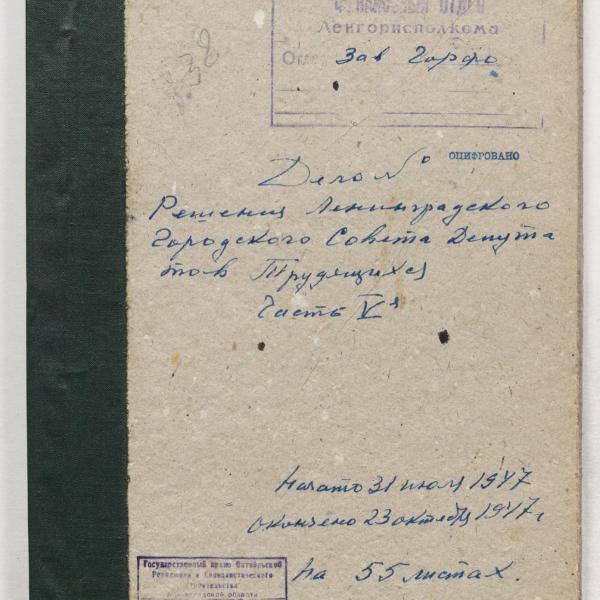 ОТДЕЛ
Ленгорисполкома
Зав Горфо
ОЦИФРОВАНО
Дело №
Решения Ленинградского
Городского Совета Депута
тов Трудящихся
Часть V я
Начато 31 июля 1947
окончено 23 октября 1947 г
На 55 листах.
Государственный архив Октябрьской
Революции и Социалистического
строительства
Ленинградской области